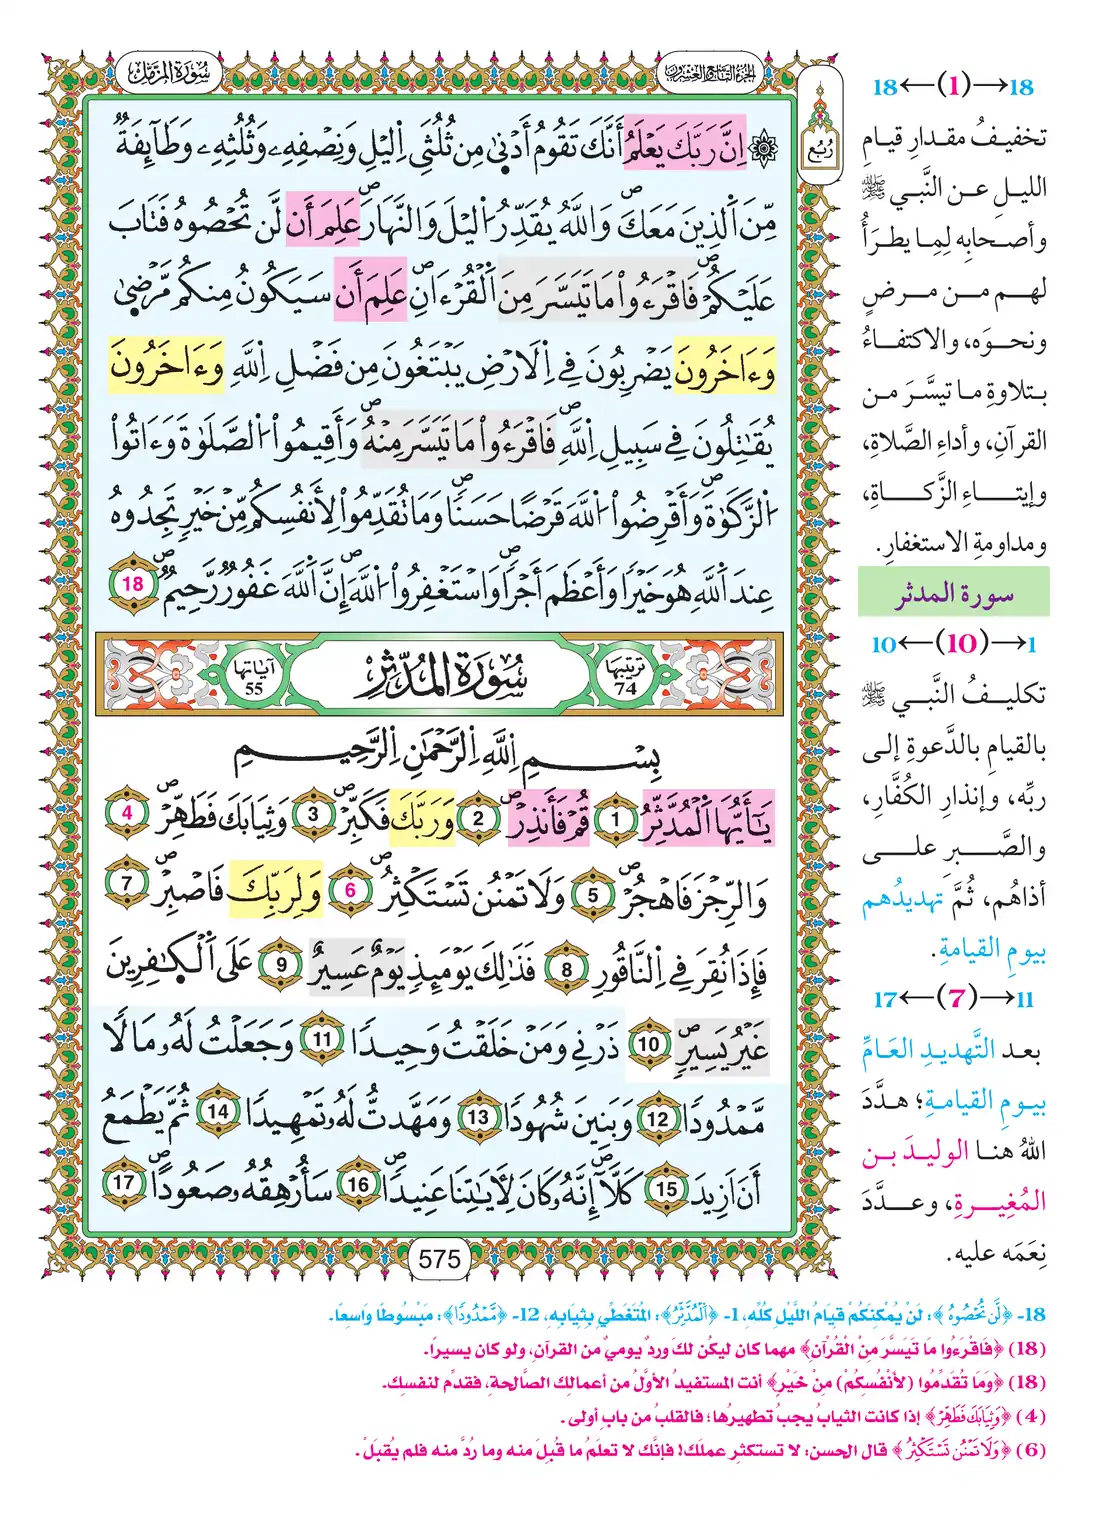 سُورَةُ المُزَّمِّل
الجزء التاسع والعشرون
رُبُع
۞ اِنَّ رَبَّكَ يَعْلَمُ أَنَّكَ تَقُومُ أَدْنَىٰ مِن ثُلُثَيِ اِ۬ليْلِ وَنِصْفِهِۦ وَثُلُثِهِۦ وَطَآئِفَةٌ
مِّنَ اَ۬لذِينَ مَعَكَۖ وَاللَّهُ يُقَدِّرُ اُ۬ليْلَ وَالنَّهَارَۖ عَلِمَ أَن لَّن تُحْصُوهُ فَتَابَ
عَلَيْكُمْۖ فَاقْرَءُواْ مَا تَيَسَّرَ مِنَ اَ۬لْقُرْءَانِۖ عَلِمَ أَن سَيَكُونُ مِنكُم مَّرْضَىٰ
وَءَاخَرُونَ يَضْرِبُونَ فِي اِ۬لَارْضِ يَبْتَغُونَ مِن فَضْلِ اِ۬للَّهِ وَءَاخَرُونَ
يُقَٰتِلُونَ فِي سَبِيلِ اِ۬للَّهِۖ فَاقْرَءُواْ مَا تَيَسَّرَ مِنْهُۖ وَأَقِيمُواْ اُ۬لصَّلَوٰةَ وَءَاتُواْ
اُ۬لزَّكَوٰةَۖ وَأَقْرِضُواْ اُ۬للَّهَ قَرْضًا حَسَنٗاۖ وَمَا تُقَدِّمُواْ لِأَنفُسِكُم مِّنْ خَيْرٖ تَجِدُوهُ
عِندَ اَ۬للَّهِ هُوَ خَيْرٗا وَأَعْظَمَ أَجْرٗاۖ وَاسْتَغْفِرُواْ اُ۬للَّهَۖ إِنَّ اَ۬للَّهَ غَفُورٞ رَّحِيمٞۖ 18
ترتيبها 74 سُورَةُ المُدَّثِّر آياتها 55
بِسْمِ اِ۬للَّهِ اِ۬لرَّحْمَٰنِ اِ۬لرَّحِيمِ
يَٰٓأَيُّهَا اَ۬لْمُدَّثِّرُ 1 قُمْ فَأَنذِرْۖ 2 وَرَبَّكَ فَكَبِّرْۖ 3 وَثِيَابَكَ فَطَهِّرْۖ 4
وَالرِّجْزَ فَاهْجُرْۖ 5 وَلَا تَمْنُن تَسْتَكْثِرُۖ 6 وَلِرَبِّكَ فَاصْبِرْۖ 7
فَإِذَا نُقِرَ فِي اِ۬لنَّاقُورِ 8 فَذَٰلِكَ يَوْمَئِذٖ يَوْمٌ عَسِيرٌ 9 عَلَى اَ۬لْكَٰفِرِينَ
غَيْرُ يَسِيرٖۖ 10 ذَرْنِي وَمَنْ خَلَقْتُ وَحِيدٗا 11 وَجَعَلْتُ لَهُۥ مَالٗا
مَّمْدُودٗا 12 وَبَنِينَ شُهُودٗا 13 وَمَهَّدتُّ لَهُۥ تَمْهِيدٗا 14 ثُمَّ يَطْمَعُ
أَنَ اَزِيدَ 15 كَلَّآۖ إِنَّهُۥ كَانَ لِأٓيَٰتِنَا عَنِيدٗاۖ 16 سَأُرْهِقُهُۥ صَعُودًاۖ 17
575
18←(1)→18
تخفيفُ مقدارِ قيامِ
الليلِ عن النَّبي ﷺ
وأصحابِه لِمَا يطرَأُ
لهم من مرضٍ
ونحوَه، والاكتفاءُ
بتلاوةِ ما تيسَّرَ من
القرآنِ، وأداءِ الصَّلاةِ،
وإيتاءِ الزَّكاةِ،
ومداومةِ الاستغفارِ.
سورة المدثر
10←(10)→1
تكليفُ النَّبي ﷺ
بالقيامِ بالدَّعوةِ إلى
ربِّه، وإنذارِ الكُفَّارِ،
والصَّبرِ على
أذاهُم، ثُمَّ تهديدُهم
بيومِ القيامةِ.
17←(7)→11
بعد التَّهديدِ العَامِّ
بيومِ القيامةِ؛ هدَّدَ
اللهُ هنا الوليدَ بن
المُغِيرةِ، وعدَّدَ
نِعَمَه عليه.
18- ﴿لَّن تُحْصُوهُ﴾: لَنْ يُمْكِنَكُمْ قِيَامُ اللَّيْلِ كُلِّهِ، 1- ﴿اَلْمُدَّثِّرُ﴾: المُتَغَطِّي بِثِيَابِهِ، 12- ﴿مَّمْدُودًا﴾: مَبْسُوطًا وَاسِعًا.
(18) ﴿فَاقْرَءُوا مَا تَيَسَّرَ مِنْ الْقُرْآنِ﴾ مهما كان ليكُن لكَ وردٌ يوميٌ من القرآنِ، ولو كان يسيرًا.
(18) ﴿وَمَا تُقَدِّمُوا (لأَنْفُسِكُمْ) مِنْ خَيْرٍ﴾ أنت المستفيدُ الأوَّلُ من أعمالِك الصَّالحةِ، فقدِّم لنفسِك.
(4) ﴿وَثِيَابَكَ فَطَهِّرْ﴾ إذا كانت الثيابُ يجبُ تطهيرُها؛ فالقلبُ من بابِ أولى.
(6) ﴿وَلَا تَمْنُن تَسْتَكْثِرُ﴾ قال الحسن: لا تستكثِر عملَك! فإنَّك لا تعلَمُ ما قُبِلَ منه وما رُدَّ منه فلم يُقبَلْ.